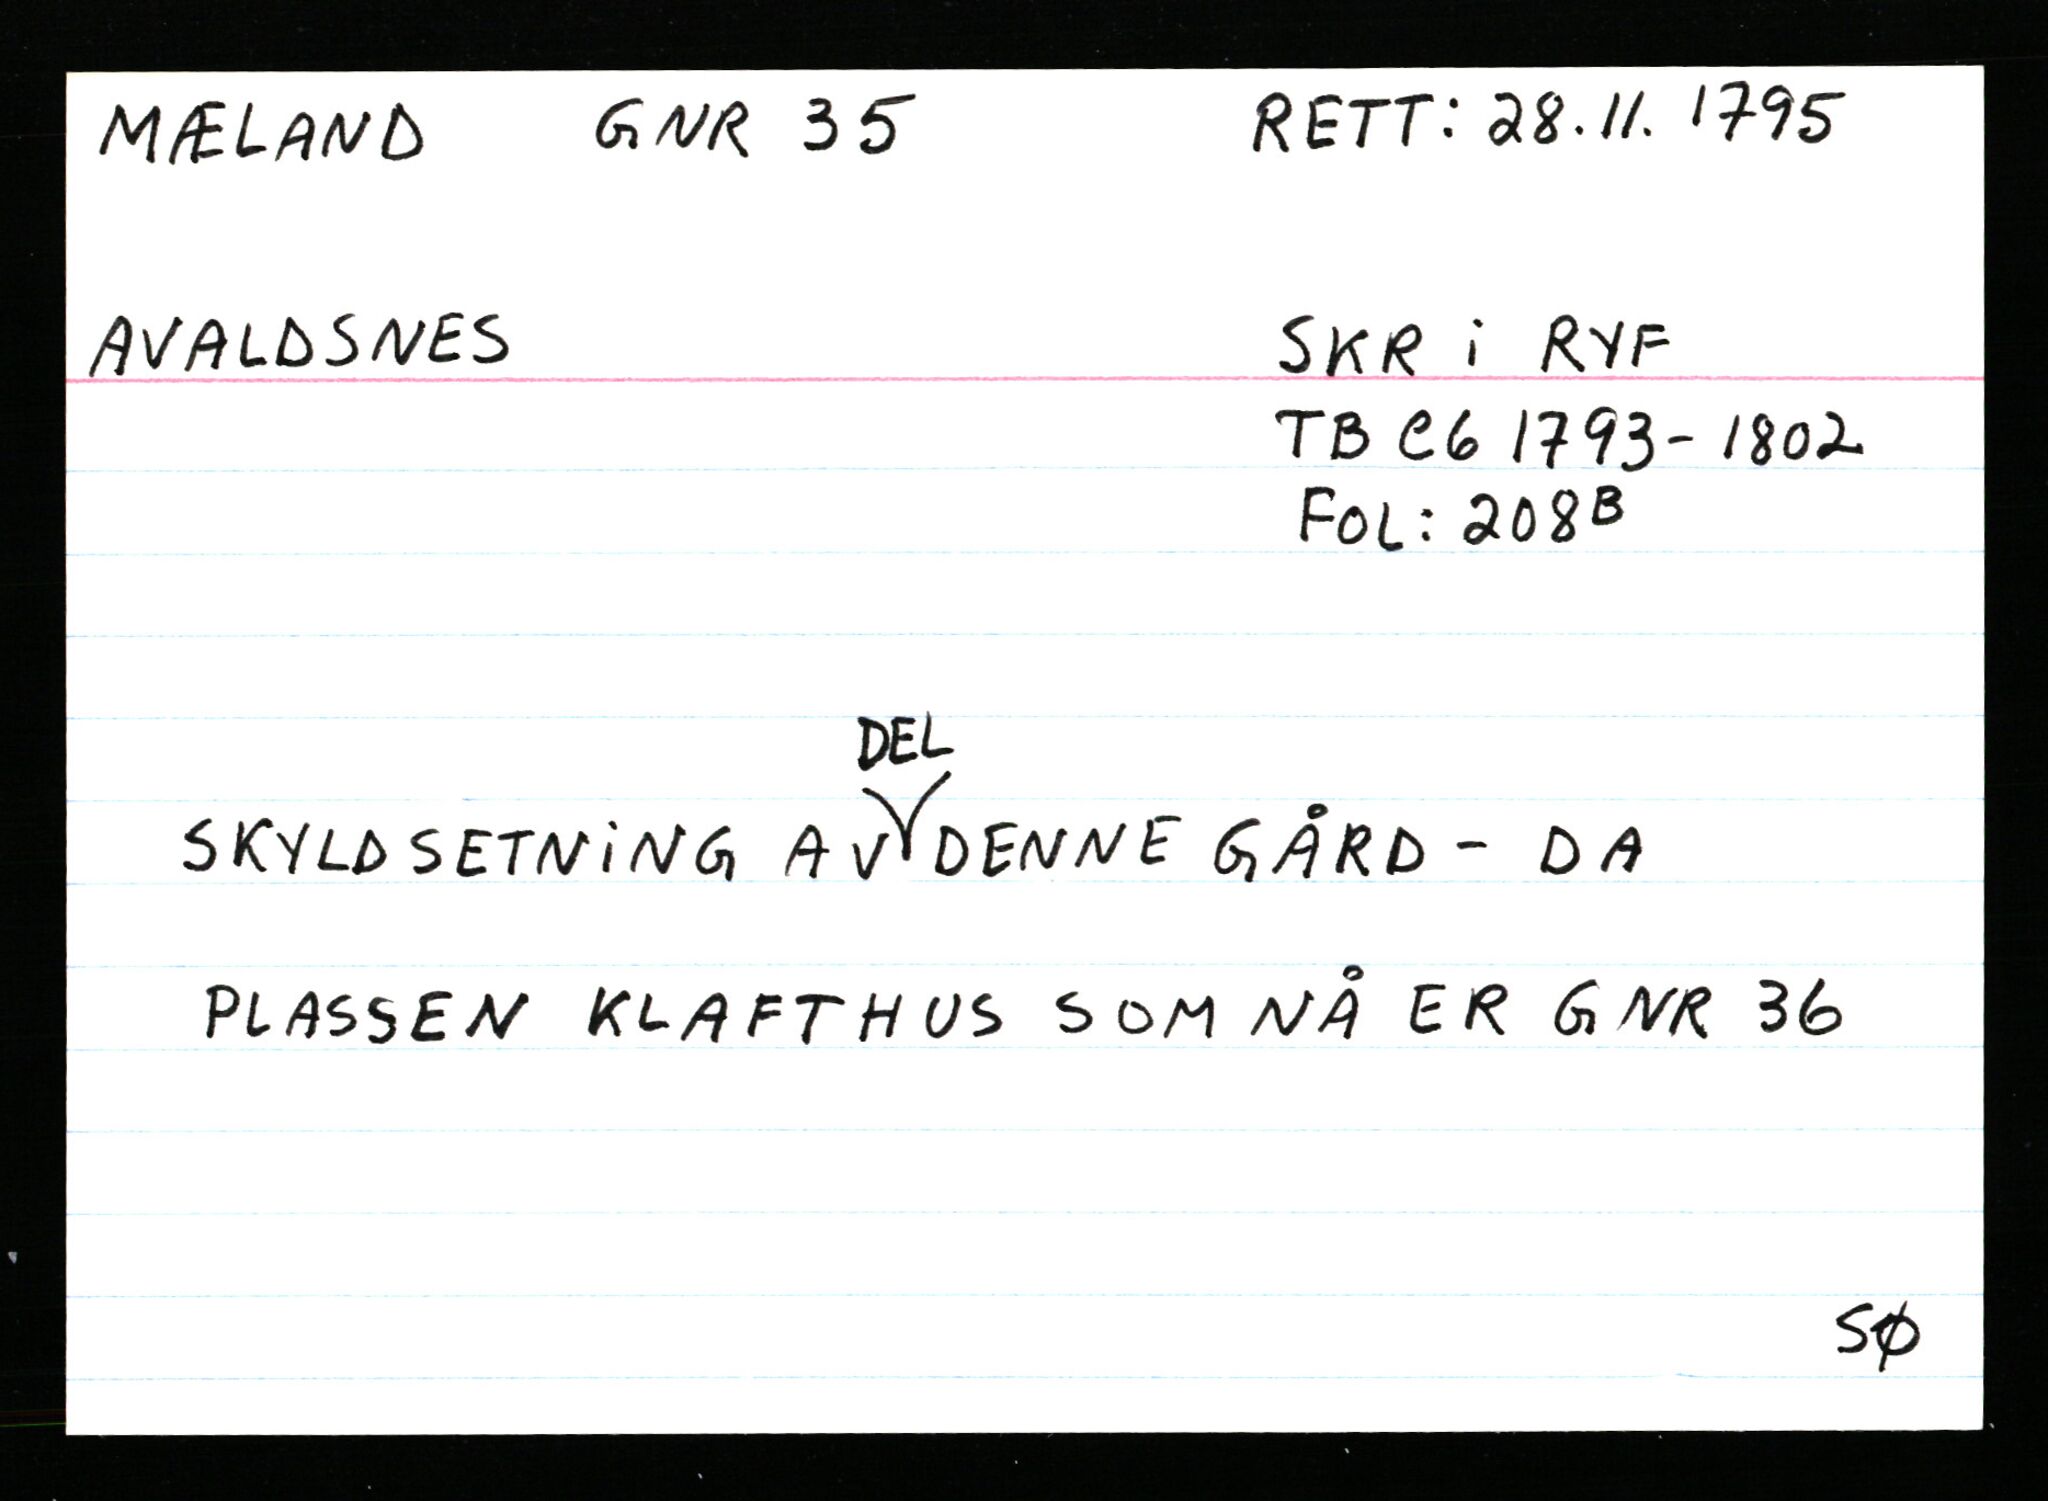 MÆLAND GNR 35 RETT: 28.11. 1795
AVALDSNES SKR i RYF
TB C6 1793-1802
FOL: 208B
DEL
SKYLDSETNiNG AV DENNE GÅRD - DA
PLASSEN KLAFTHUS SOM NÅ ER GNR 36
SØ